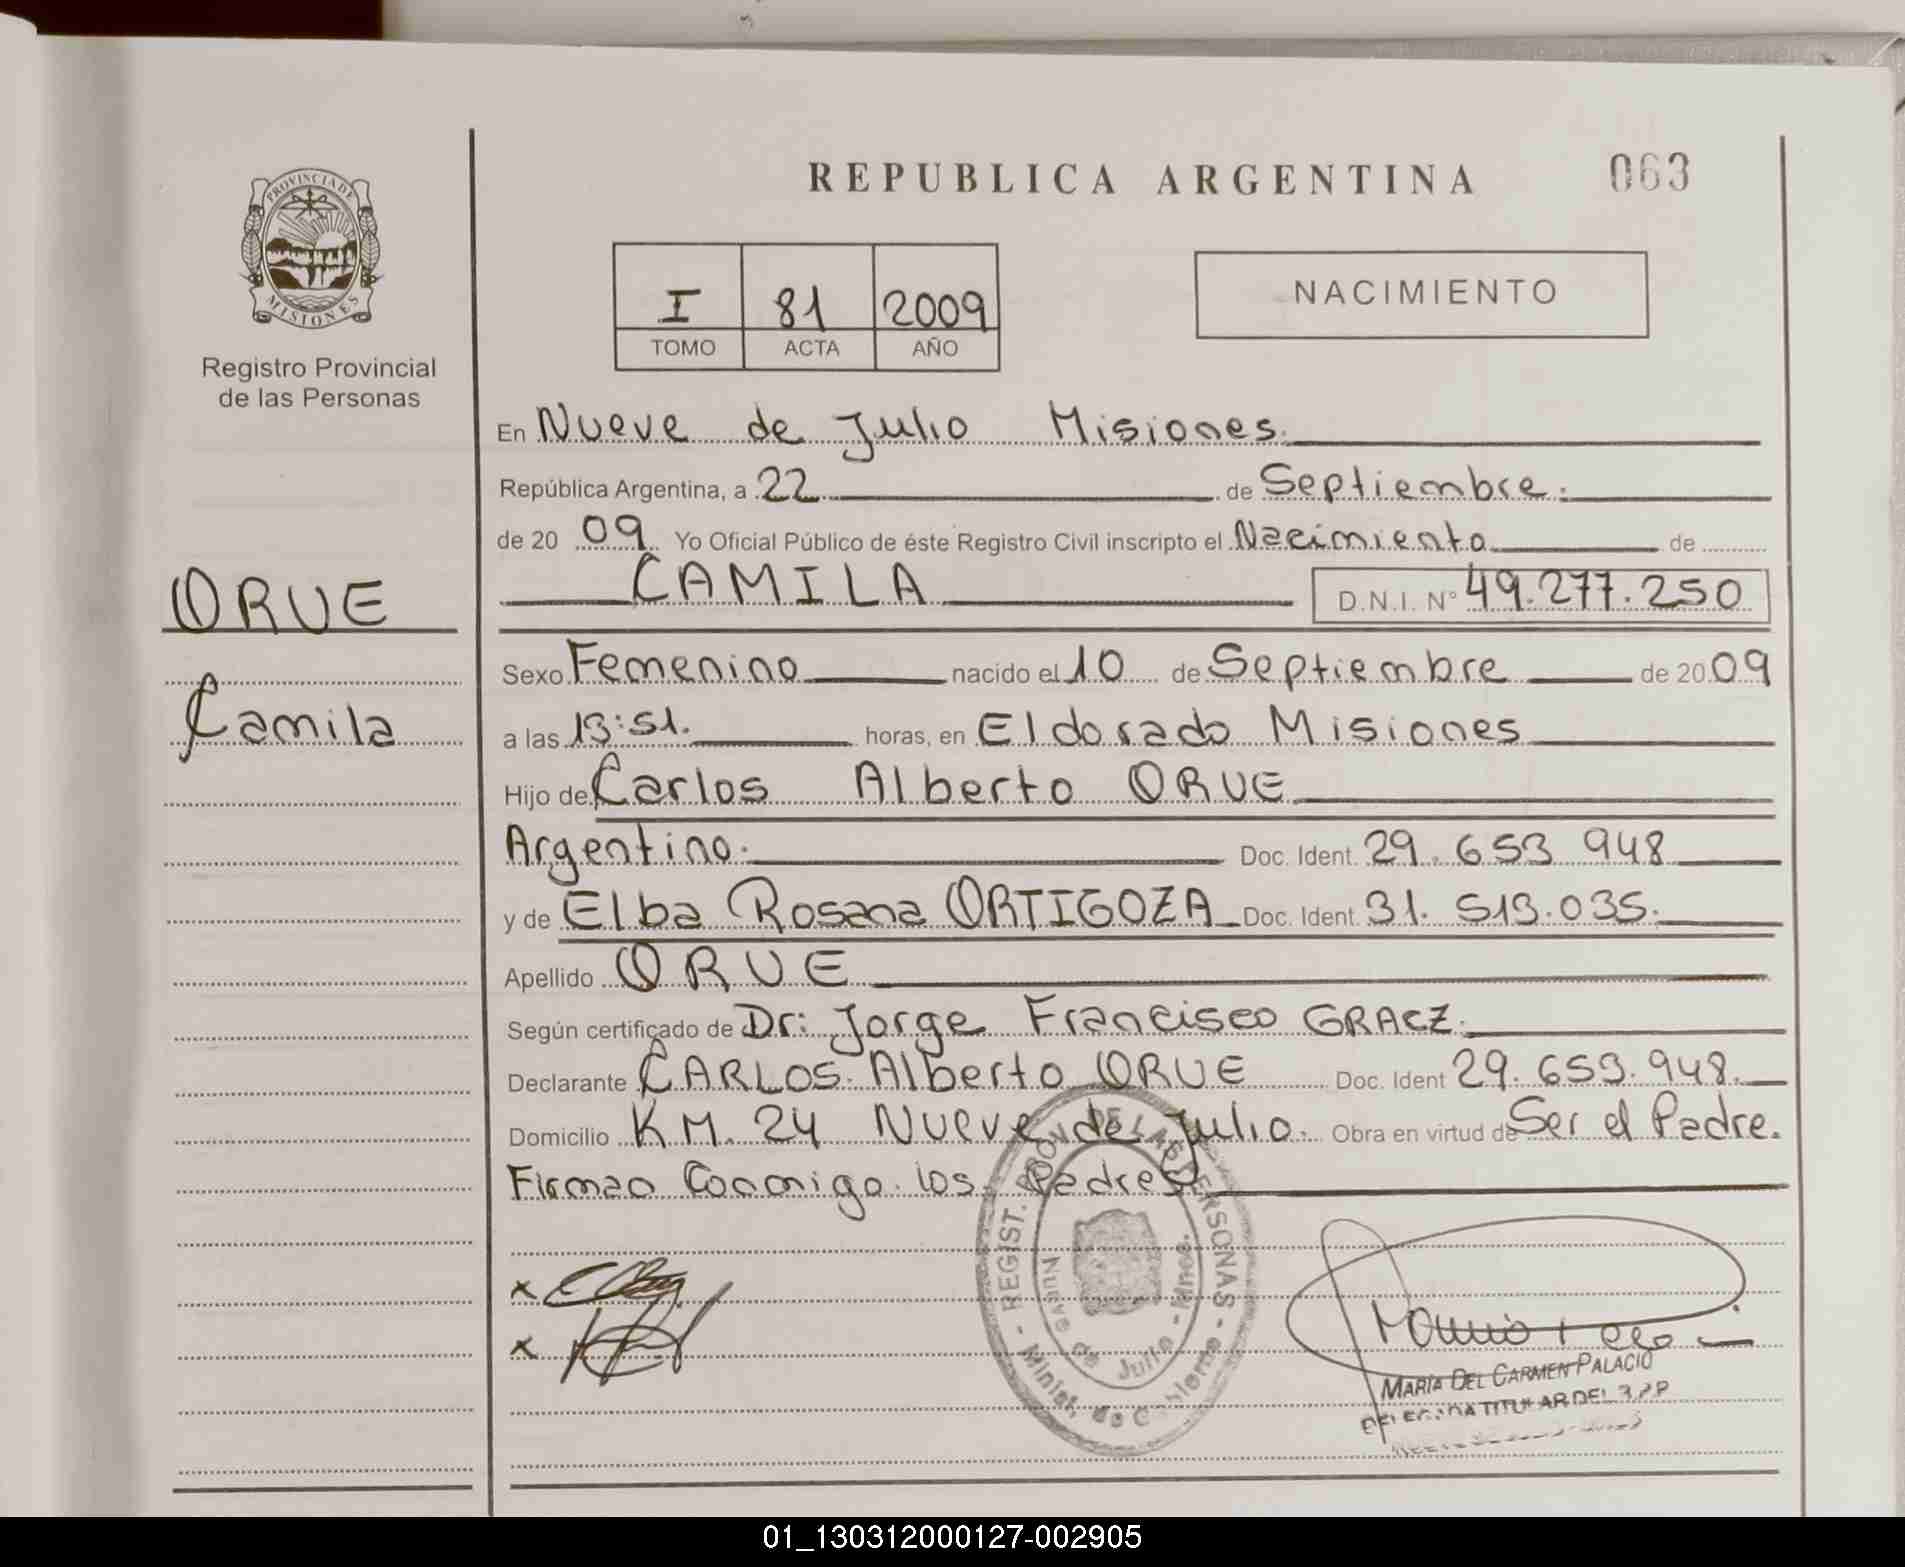 REPUBLICA ARGENTINA
063
PROVINCIA DE
MISIONES
Registro Provincial
de las Personas
I 81 2009
TOMO ACTA AÑO
NACIMIENTO
En Nueve de Julio Misiones.
República Argentina, a 22 de Septiembre.
de 20 09 Yo Oficial Público de éste Registro Civil inscripto el Nacimiento de
CAMILA D.N.I. N° 49.277.250
ORUE
Camila
Sexo Femenino nacido el 10 de Septiembre de 20 09
a las 13:51. horas, en Eldorado Misiones
Hijo de Carlos Alberto ORUE
Argentino. Doc. Ident. 29.653 948
y de Elba Rosana ORTIGOZA Doc. Ident. 31.513.035.
Apellido ORUE
Según certificado de Dr: Jorge Francisco GRACZ.
Declarante CARLOS Alberto ORUE Doc. Ident 29.653.948.
Domicilio KM. 24 Nueve de Julio. Obra en virtud de Ser el Padre.
Firman Conmigo los Padres
x
x
REGIST. PROV. DE LAS PERSONAS
Nueve de Julio - Mnes.
Minist. de Gobierno
MARÍA DEL CARMEN PALACIO
TITULAR DEL
01_130312000127-002905